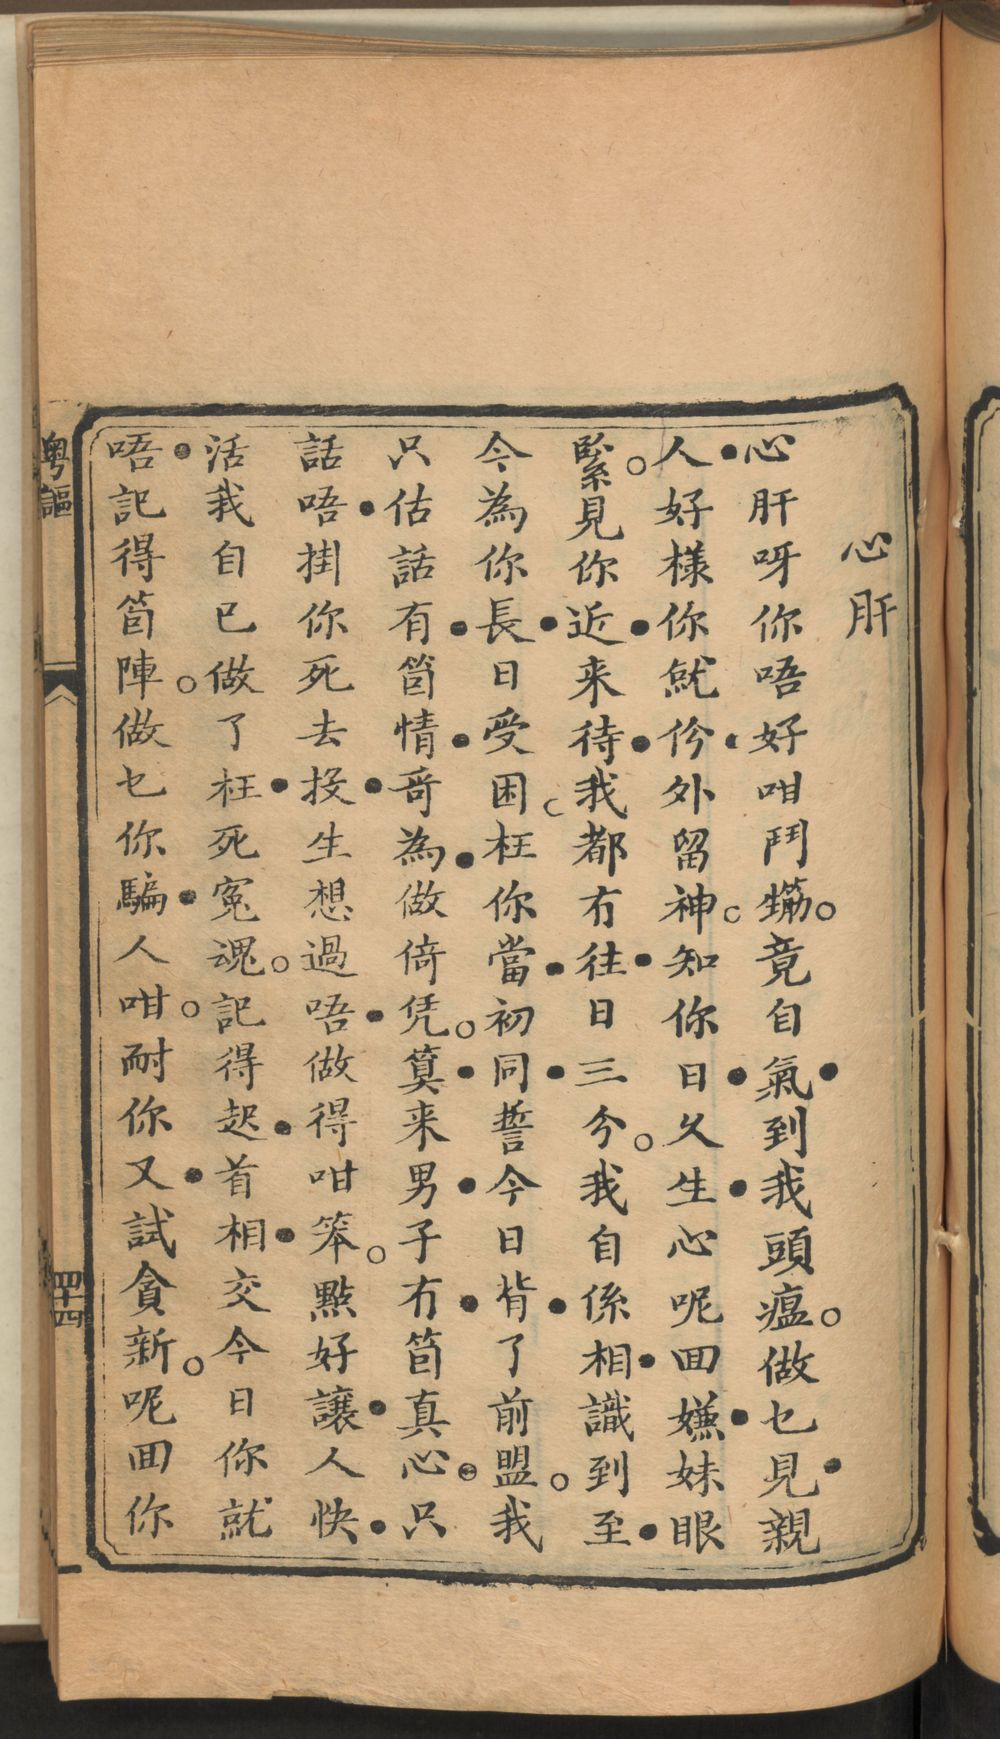 心肝
心肝呀你唔好咁鬥韧。竟自氣到我頭瘟。做乜見親
人好樣你就伶外留神。知你日久生心呢囬嫌妹眼
緊。見你近来待我都冇往日三分。我自係相識到至
今為你長日受困。枉你當初同誓今日背了前盟。我
只估話有箇情哥為做倚凭。莫来男子冇箇真心。只
話唔掛你死去投生想過唔做得咁笨。點好讓人快
活我自已做了枉死寃魂。記得起首相交今日你就
唔記得箇陣。做乜你騙人咁。耐你又試貪新。呢囬你
粵謳
四十四